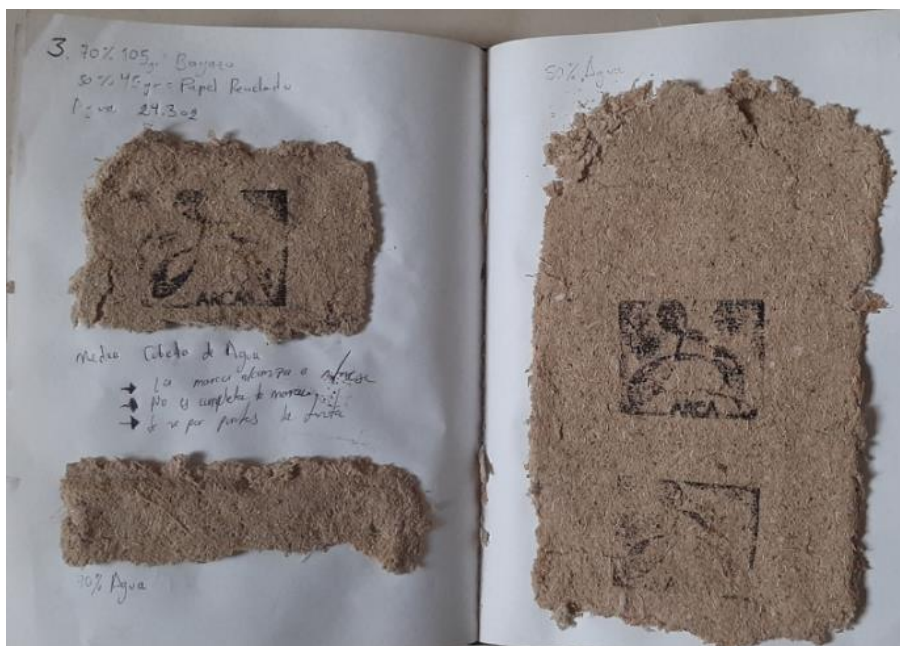 3. 70% 105 gr. Bagazo
50% 45 gr = Papel Reciclado
Agua 24.302
ARCA
Media Cubeta de Agua
→ La marca alcanza a
→ No es completa la marca
→ Se ve por puntos la tinta
Agua
50% Agua
ARCA